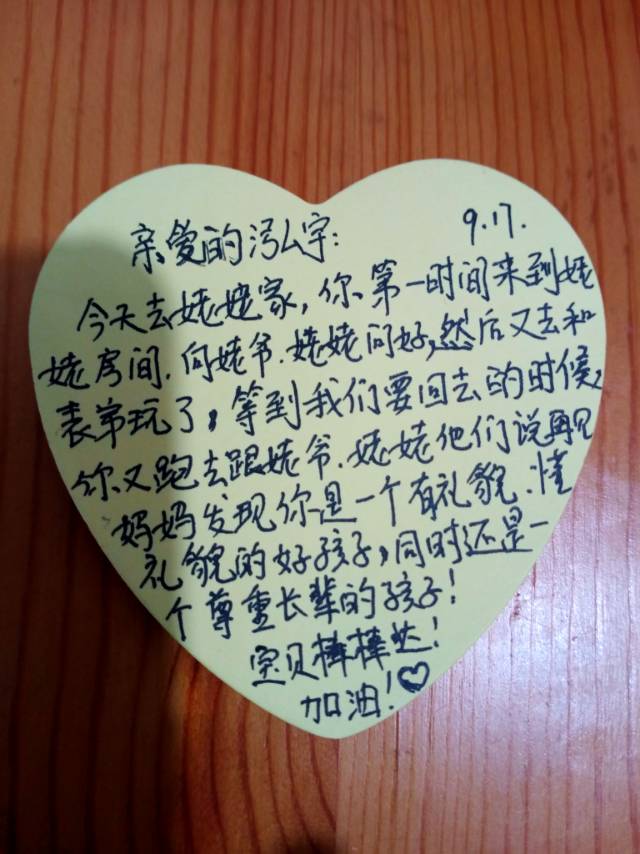 亲爱的泓宇: 9.17.
今天去姥姥家,你第一时间来到姥
姥房间.向姥爷.姥姥问好,然后又去和
表弟玩了,等到我们要回去的时候,
你又跑去跟姥爷.姥姥他们说再见
妈妈发现你是一个有礼貌.懂
礼貌的好孩子,同时还是一
个尊重长辈的孩子!
宝贝棒棒哒!
加油!♡